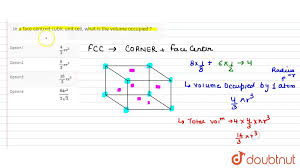 In a face centred cubic unit cell, what is the volume occupied ?
Option1
Option2
Option3
Option4
FCC → CORNER + Face Center
8 x 1/8 + 6 x 1/2 → 4
Radius
↳ volume occupied by 1 atom
4/3 πr³
↳ Total vol^m → 4 x 4/3 x πr³
16/3 πr³
doubtnut